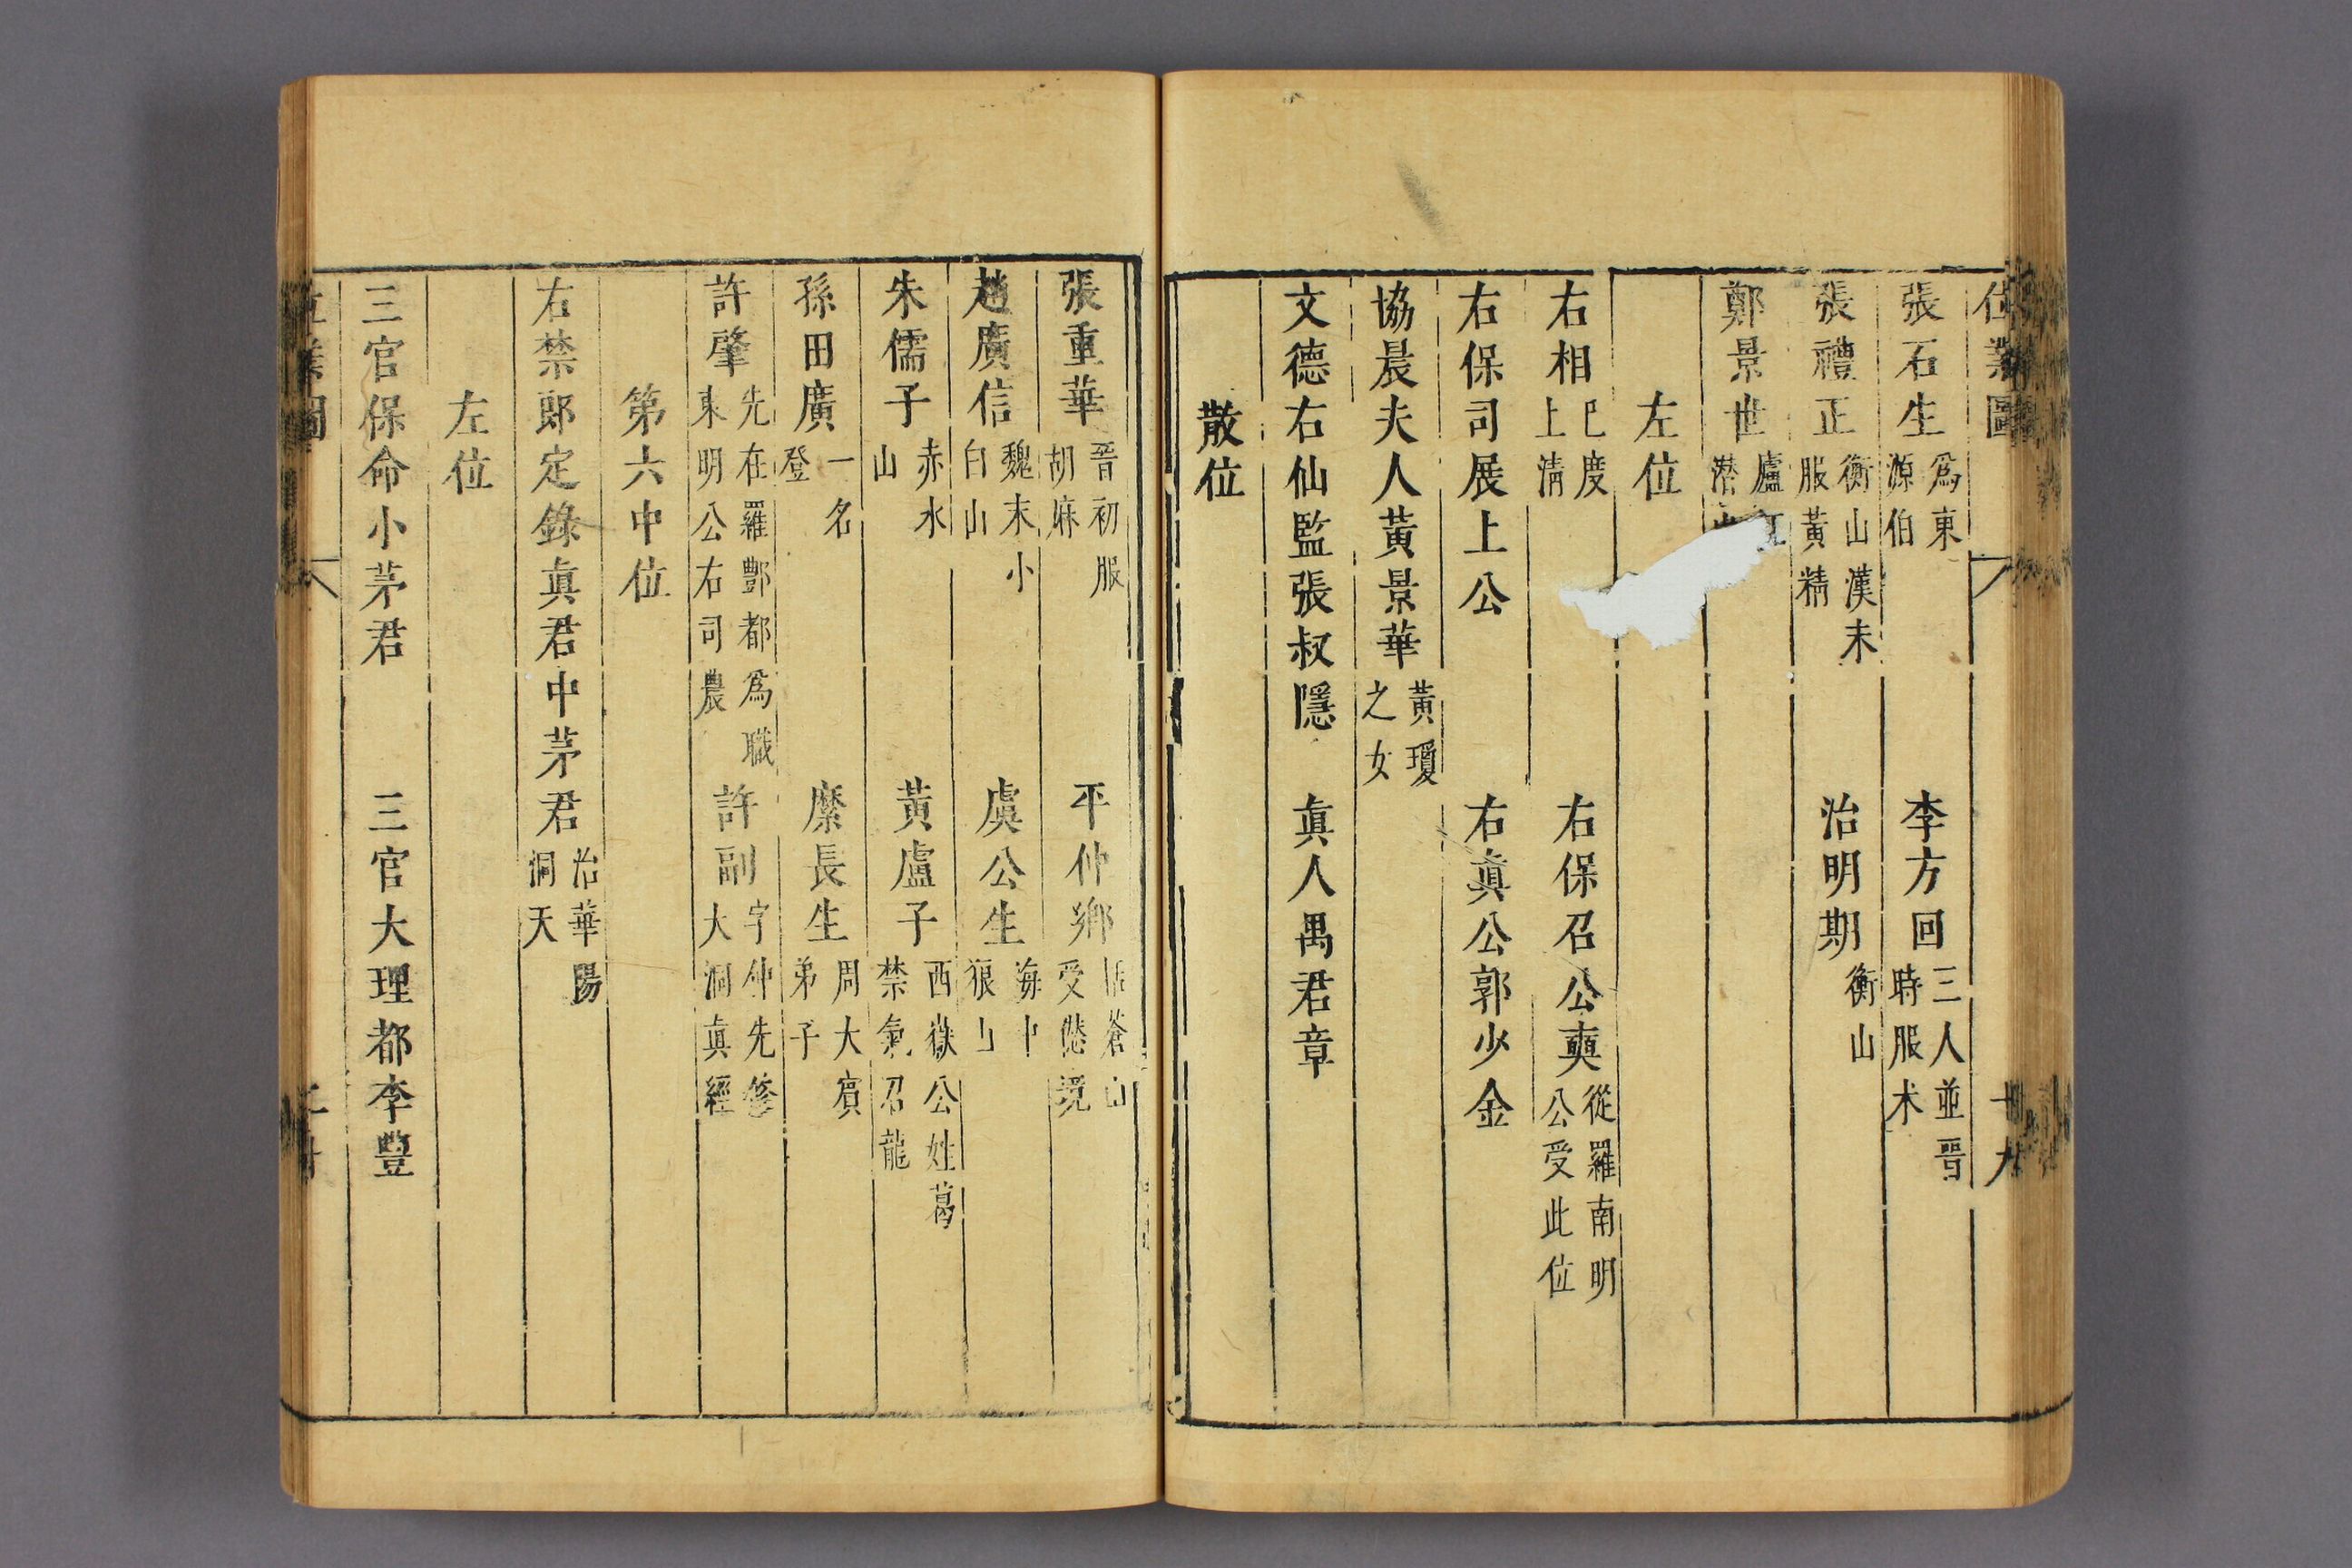 位業圖 十九
張石生 爲東源伯 李方回 三人並晉時服术
張禮正 衡山漢末服黃精 治明期 衡山
鄭景世 廬江潛
左位
右相 已度上清 右保召公奭 從羅南明公受此位
右保司展上公 右眞公郭少金
協晨夫人黃景華 黃瓊之女
文德右仙監張叔隱 眞人禺君章
散位
張重華 晉初服胡麻 平仲鄉 括蒼山受
趙廣信 魏末小白山 虞公生 海中狼山
朱儒子 赤水山 黃盧子 西嶽公姓葛禁氣召龍
孫田廣 一名登 糜長生 周大賓弟子
許肇 先在羅酆都爲職東明公右司農 許副 字仲先修大洞眞經
第六中位
右禁郎定錄眞君中茅君 治華陽洞天
左位
三官保命小茅君 三官大理都李豐
位業圖